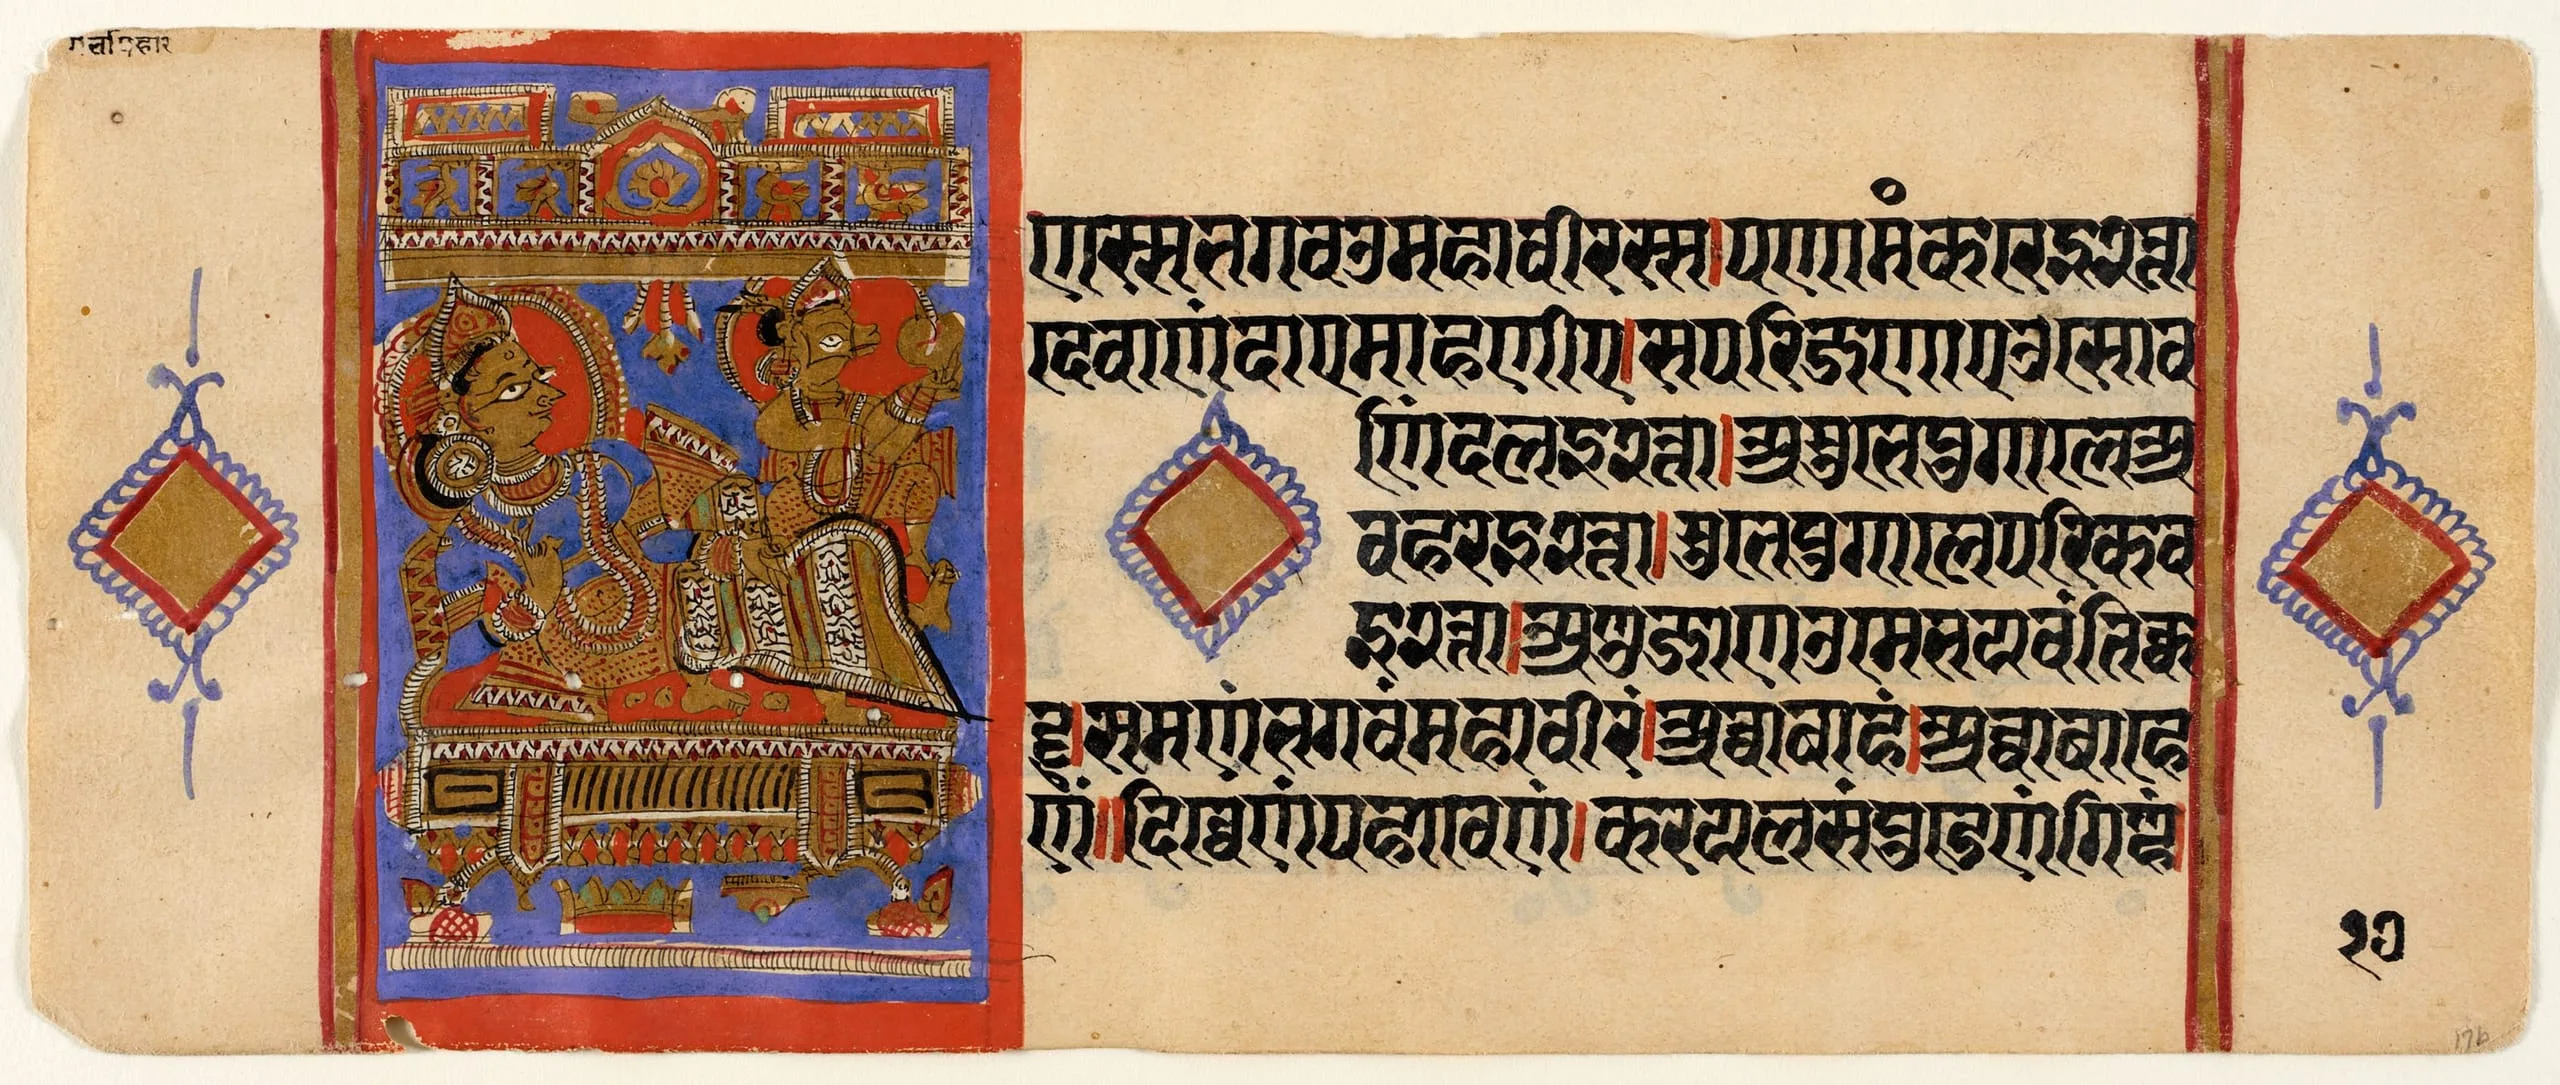 गर्भापहार
णस्स भगवउ महावीरस्स।पणामं करेइ२त्ता
देवाणंदाए माहणीए।सपरिजणाए उसोव
णिं दलइ२त्ता।असुभे पुग्गले अ
वहरइ२त्ता।सुभे पुग्गले परिकव
इ२त्ता।अणुजाणउ मे भयवं ति क
ट्टु।समणं भगवं महावीरं।अव्वाबाहं।अव्वाबाहे
णं॥दिव्वेणं पहावेणं।करयलसंपुडेणं गिण्हं।
१७
17b